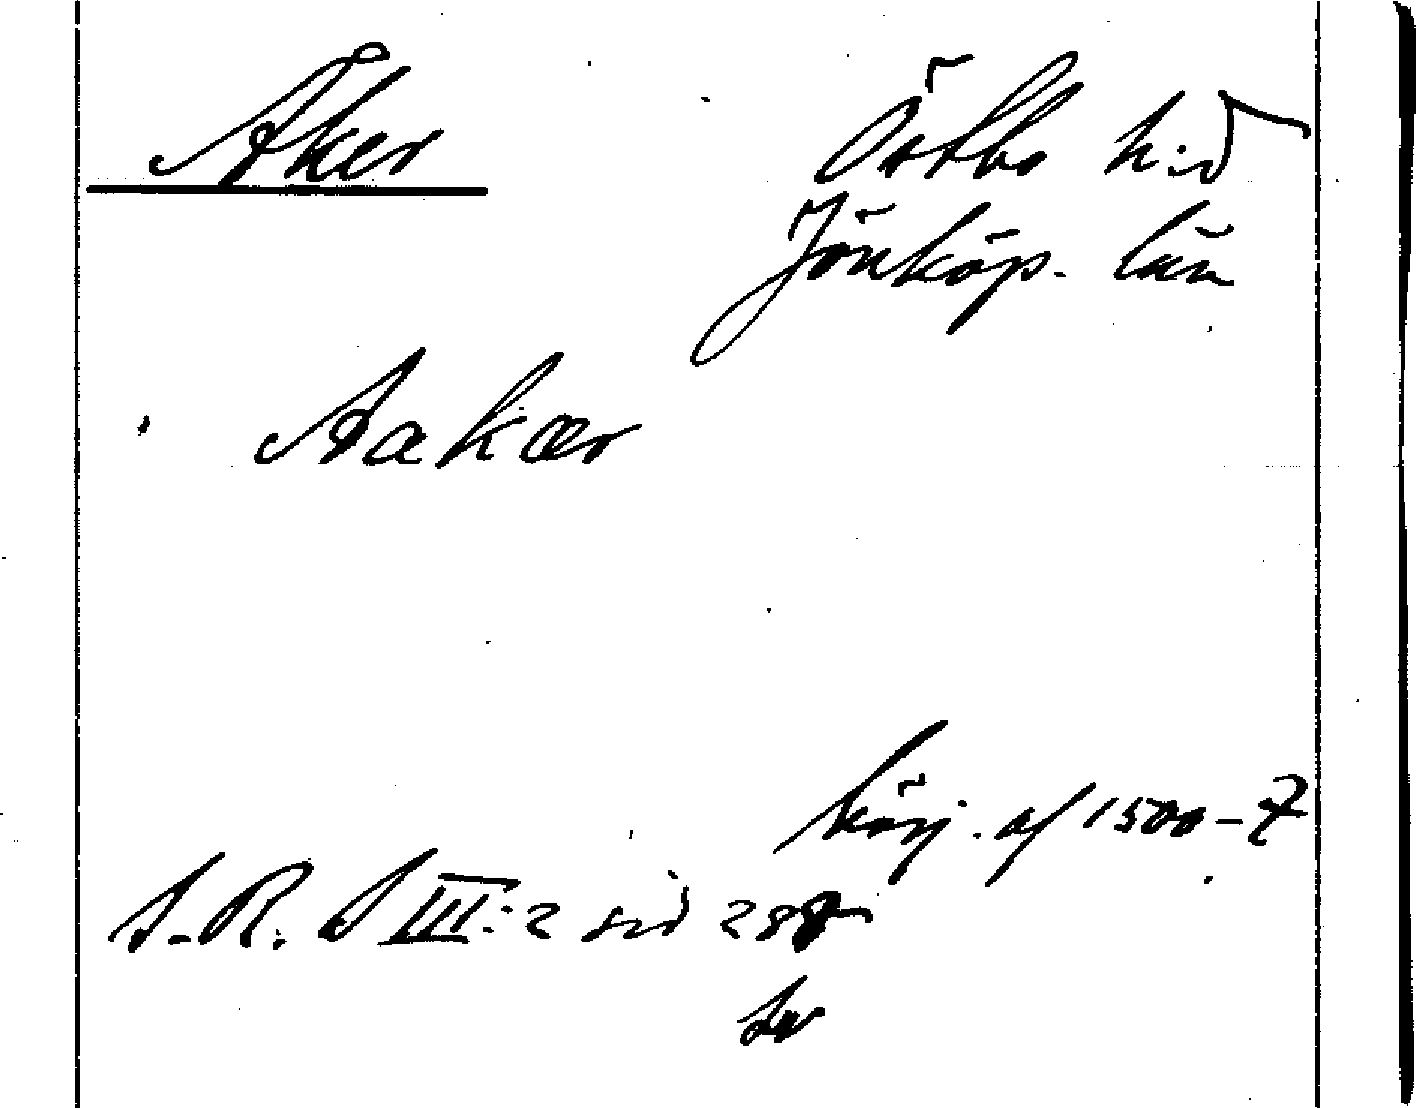 Åker
Östbo h:d
Jönköp. län
Aakær
börj. af 1500-t
S.R.S III:2 sid 287